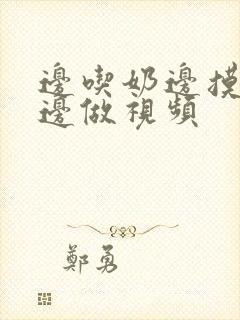 邊喫奶邊摸
邊做視頻
鄭勇